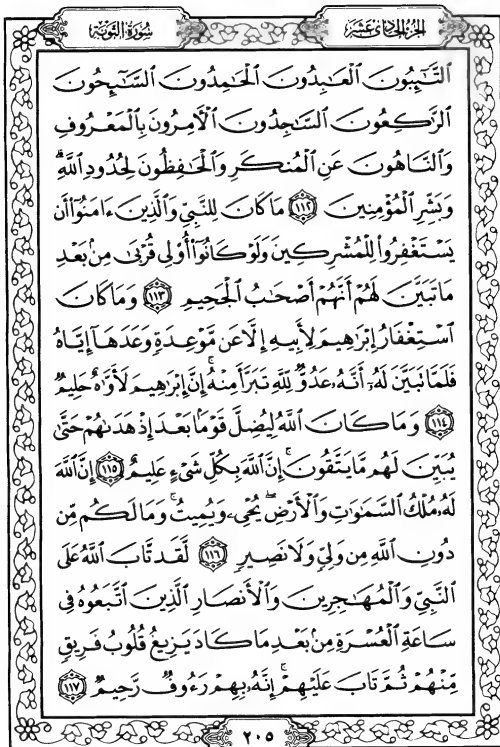 الجزء الحادي عشر
سورة التوبة
التَّٰٓئِبُونَ الْعَٰبِدُونَ الْحَٰمِدُونَ السَّٰٓئِحُونَ
الرَّٰكِعُونَ السَّٰجِدُونَ الْءَامِرُونَ بِالْمَعْرُوفِ
وَالنَّاهُونَ عَنِ الْمُنكَرِ وَالْحَٰفِظُونَ لِحُدُودِ اللَّهِ ۗ
وَبَشِّرِ الْمُؤْمِنِينَ ١١٢ مَا كَانَ لِلنَّبِيِّ وَالَّذِينَ ءَامَنُوٓا۟ أَن
يَسْتَغْفِرُوا۟ لِلْمُشْرِكِينَ وَلَوْ كَانُوٓا۟ أُو۟لِى قُرْبَىٰ مِنۢ بَعْدِ
مَا تَبَيَّنَ لَهُمْ أَنَّهُمْ أَصْحَٰبُ الْجَحِيمِ ١١٣ وَمَا كَانَ
اسْتِغْفَارُ إِبْرَٰهِيمَ لِأَبِيهِ إِلَّا عَن مَّوْعِدَةٍ وَعَدَهَآ إِيَّاهُ
فَلَمَّا تَبَيَّنَ لَهُۥٓ أَنَّهُۥ عَدُوٌّ لِّلَّهِ تَبَرَّأَ مِنْهُ ۚ إِنَّ إِبْرَٰهِيمَ لَأَوَّٰهٌ حَلِيمٌ
١١٤ وَمَا كَانَ اللَّهُ لِيُضِلَّ قَوْمًۢا بَعْدَ إِذْ هَدَىٰهُمْ حَتَّىٰ
يُبَيِّنَ لَهُم مَّا يَتَّقُونَ ۚ إِنَّ اللَّهَ بِكُلِّ شَىْءٍ عَلِيمٌ ١١٥ إِنَّ اللَّهَ
لَهُۥ مُلْكُ السَّمَٰوَٰتِ وَالْأَرْضِ ۖ يُحْىِۦ وَيُمِيتُ ۚ وَمَا لَكُم مِّن
دُونِ اللَّهِ مِن وَلِىٍّ وَلَا نَصِيرٍ ١١٦ لَّقَد تَّابَ اللَّهُ عَلَى
النَّبِىِّ وَالْمُهَٰجِرِينَ وَالْأَنصَارِ الَّذِينَ اتَّبَعُوهُ فِى
سَاعَةِ الْعُسْرَةِ مِنۢ بَعْدِ مَا كَادَ يَزِيغُ قُلُوبُ فَرِيقٍ
مِّنْهُمْ ثُمَّ تَابَ عَلَيْهِمْ ۚ إِنَّهُۥ بِهِمْ رَءُوفٌ رَّحِيمٌ ١١٧
٢٠٥